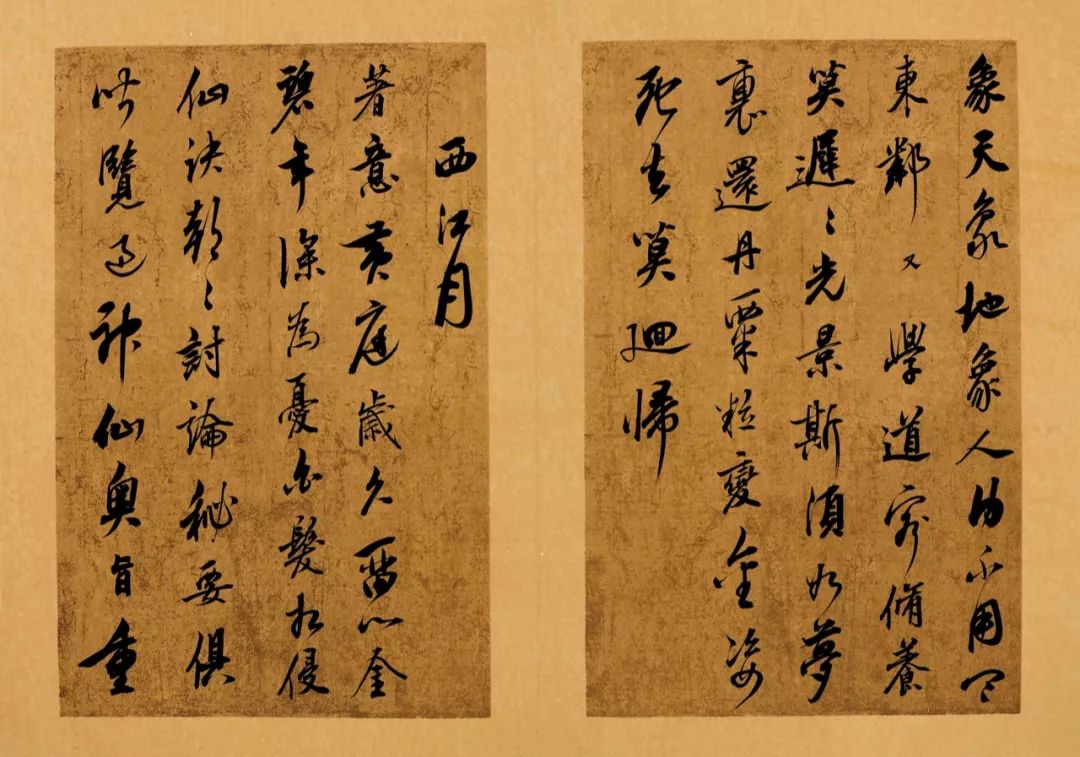 象天象地象人身不用問
東鄰 又 學道客脩養
莫遲〻光景斯須如夢
裏還丹粟粒變金姿
死去莫迴歸
西江月
著意黃庭歲久留心金
碧年深為憂白髮相侵
仙訣朝〻討論秘要俱
皆覽過神仙奧旨重